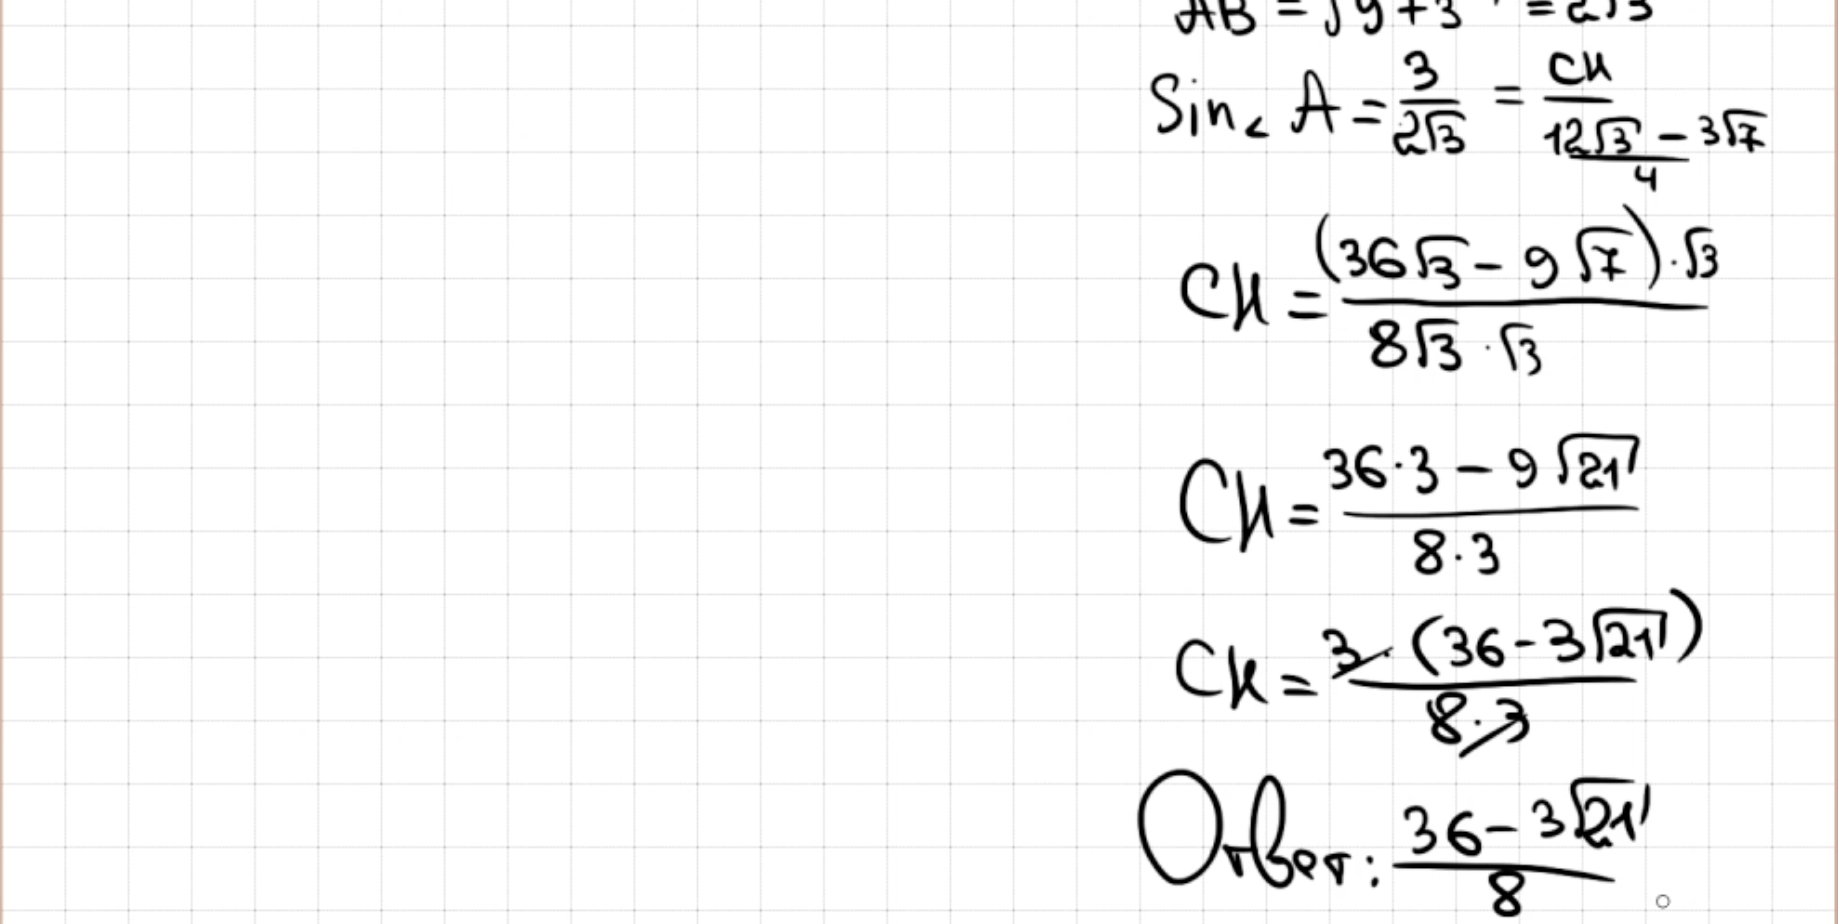 AB = √9+3 = 2√3
Sin∠ A = 3/(2√3) = CH/((12√3 - 3√7)/4)
CH = ((36√3 - 9√7)·√3)/(8√3·√3)
CH = (36·3 - 9√21)/(8·3)
CH = (3·(36-3√21))/(8·3)
Ответ: (36-3√21)/8